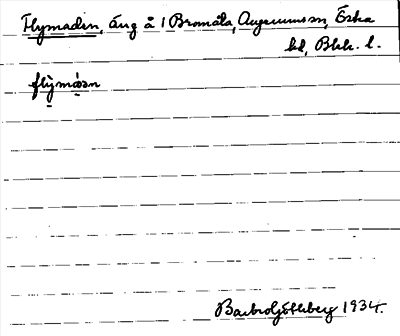 Flymaden, äng å 1 Bromåla, Augerums sn, Östra
hd, Blek. l.
flỳmáən
Barbro Göhlberg 1934.